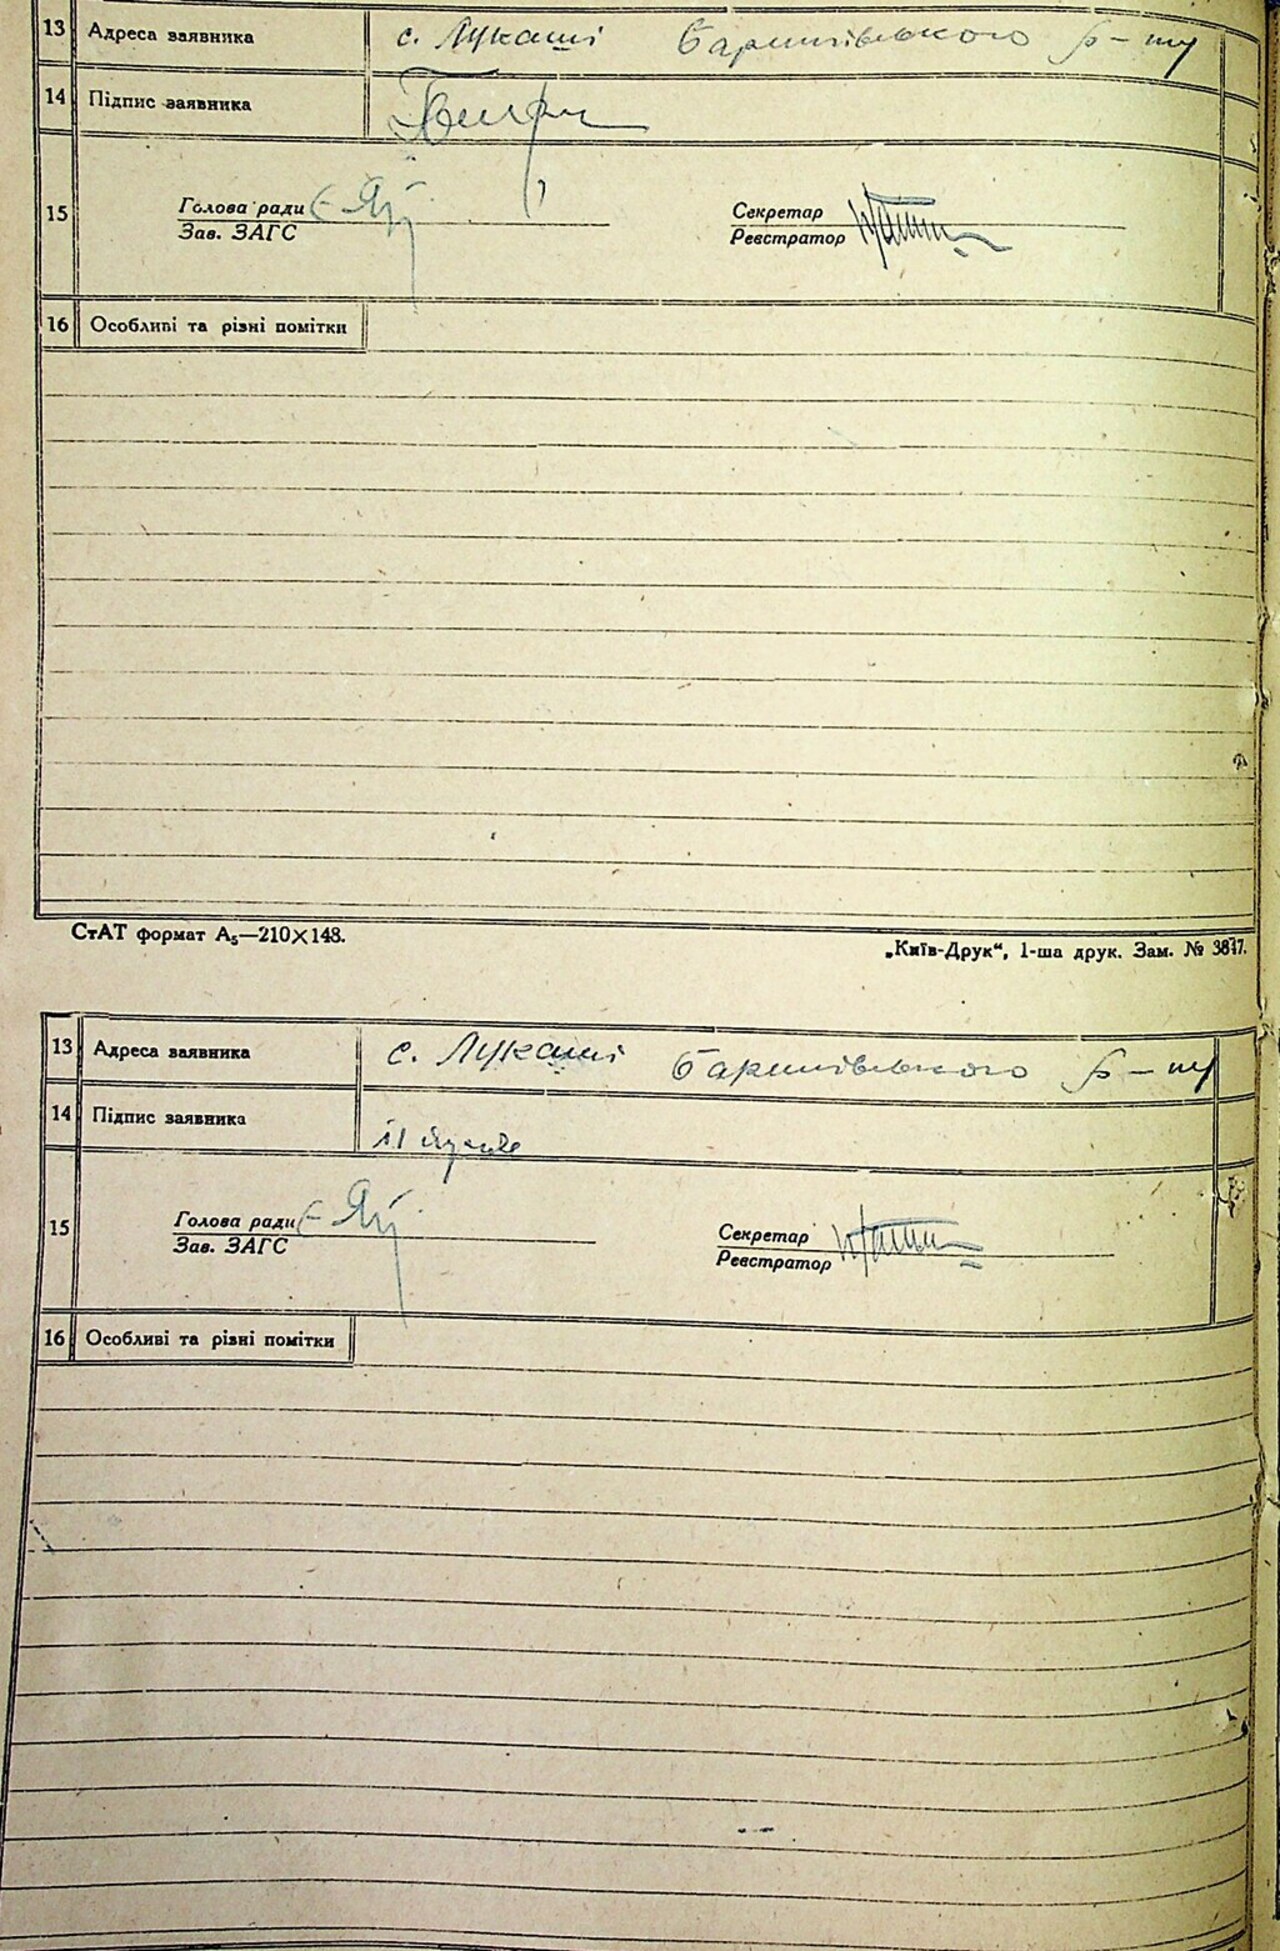 13 Адреса заявника с. Лукаші Баришівського р-ну
14 Підпис заявника
15 Голова ради Секретар
Зав. ЗАГС Реєстратор
16 Особливі та різні помітки
СтАТ формат А₅—210×148. „Київ-Друк“, 1-ша друк. Зам. № 3877.
13 Адреса заявника с. Лукаші Баришівського р-ну
14 Підпис заявника
15 Голова ради Секретар
Зав. ЗАГС Реєстратор
16 Особливі та різні помітки